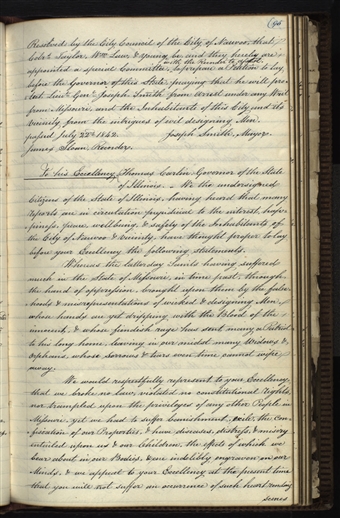 95
Resolved by the City Council of the City of Nauvoo, that
Cols. Taylor, Wm. Law, & Young be and they hereby are
with the Recorder to assist
appointed a special Committee, to prepare a Petition to lay
before the Governor of this State, praying that he will pro-
tect Lieut. Genl. Joseph Smith from arrest under any Writ
from Missouri, and the Inhabitants of this City and its
Vicinity from the intrigues of evil designing Men.
passed, July 22nd 1842. Joseph Smith, Mayor.
James Sloan, Recorder.
To his Excellency Thomas Carlin Governor of the State
of Illinois. We the undersigned
Citizens of the State of Illinois, having heard that many
reports are in circulation prejudicial to the interest, happ-
piness, peace, well being, & safety of the Inhabitants of
the City of Nauvoo & Vicinity, have thought proper to lay
before your Excellency the following statements.
Whereas the Latter day Saints having suffered
much in the State of Missouri, in time past, through
the hand of oppression, brought upon them by the false-
hoods & misrepresentations of wicked & designing Men
whose hands are yet dripping with the Blood of the
innocent, & whose fiendish rage has sent many a Patriot
to his long home, leaving in our midst many Widows &
Orphans, whose sorrows & tears even time cannot wipe
away.
We would respectfully represent to your Excellency,
that we broke no Law, violated no constitutional rights,
nor trampled upon the privileges of any other People in
Missouri, yet we had to suffer banishment, exile, the con-
fiscation of our Properties, & have diseases, distress, & misery
entailed upon us & our Children, the effects of which we
bear about in our Bodies, & are indelibly engraven on our
Minds, & we appeal to your Excellency at the present time
that you will not suffer an occurrence of such heart rending
scenes